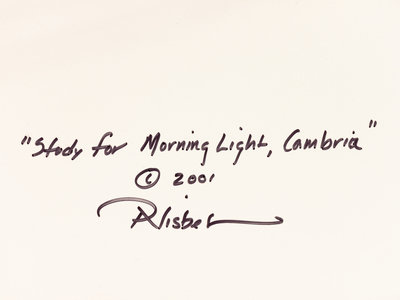 "Study for Morning Light, Cambria"
© 2001